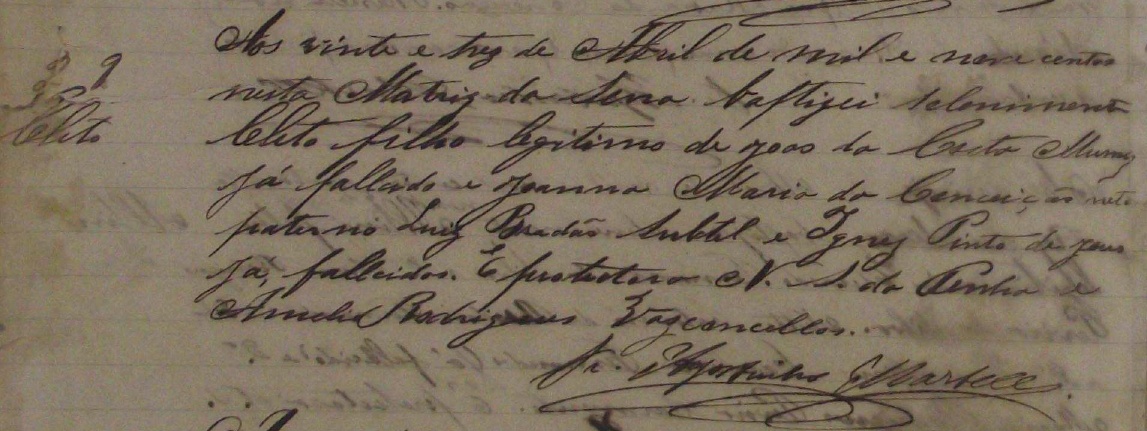 Aos vinte e trez de Abril de mil e nove centos
9
nesta Matriz da Serra baptizei solenimente
Cleto
Cleto filho legitimo de Joao da Costa Muniz
já fallcido e Joanna Maria da Conceição neto
paterno Luiz Subtil e Ignez Pinto de Jesus
já fallcidos. E protectora N. S. da Penha e
Amelia Rodrigues Vazconcellos.
Fr. Agostinho Martell